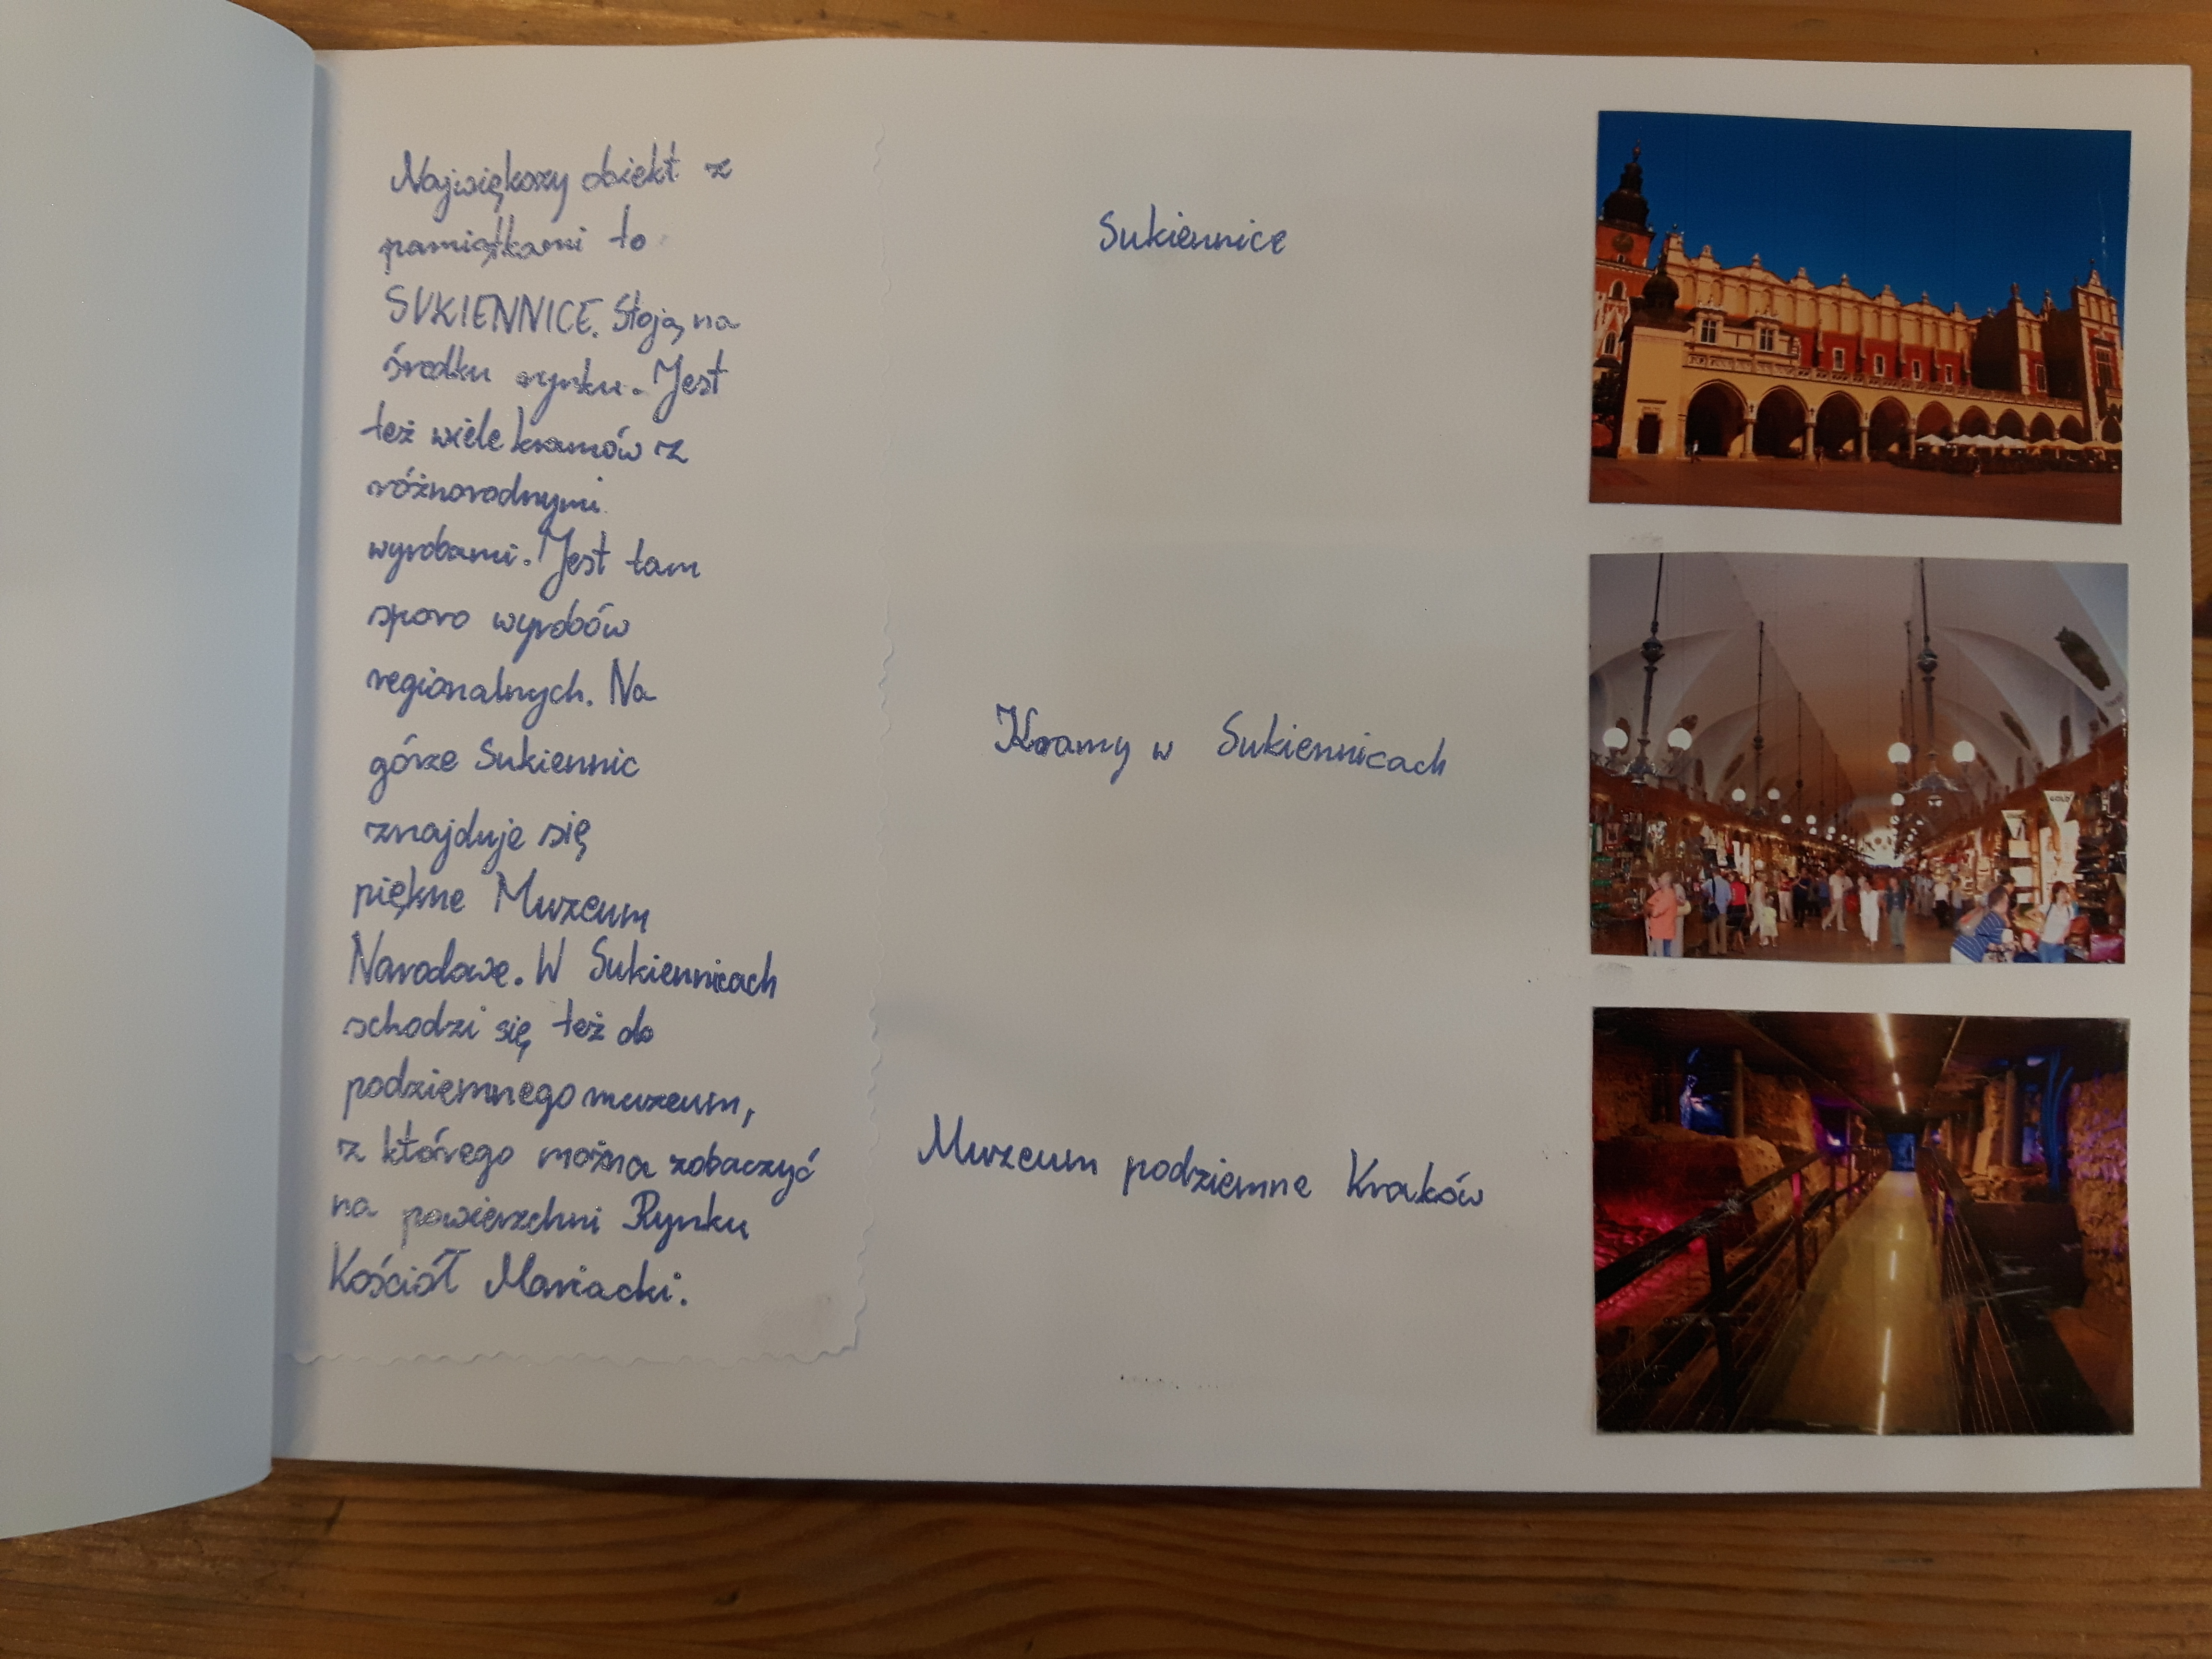 Największy obiekt z
pamiątkami to
SUKIENNICE. Stoją na
środku rynku. Jest
też wiele kramów z
różnorodnymi
wyrobami. Jest tam
sporo wyrobów
regionalnych. Na
górze Sukiennic
znajduje się
piękne Muzeum
Narodowe. W Sukiennicach
schodzi się też do
podziemnego muzeum,
z którego można zobaczyć
na powierzchni Rynku
Kościół Mariacki.
Sukiennice
Kramy w Sukiennicach
GOLD
Muzeum podziemne Kraków